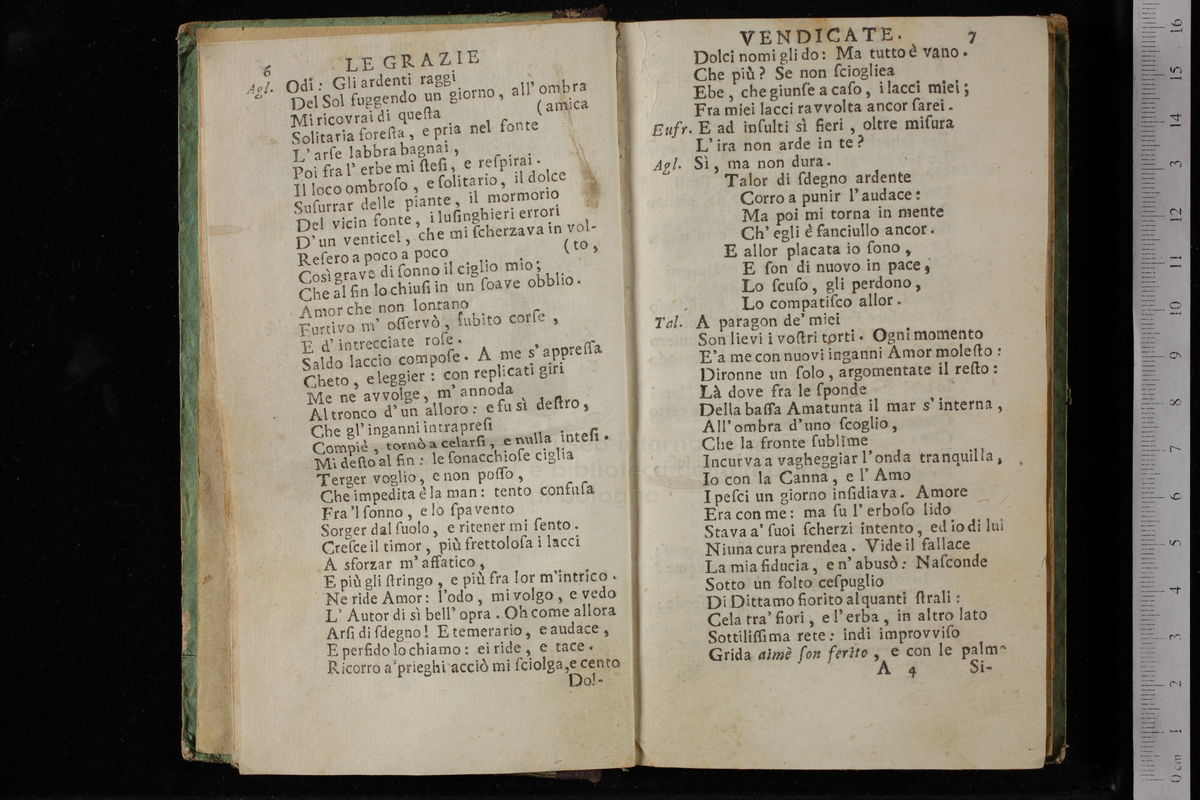 6
LE GRAZIE
Agl. Odi: Gli ardenti raggi
Del Sol fuggendo un giorno, all' ombra
(amica
Mi ricovrai di queſta
Solitaria foreſta, e pria nel fonte
L' arſe labbra bagnai,
Poi fra l' erbe mi ſteſi, e reſpirai.
Il loco ombroſo, e ſolitario, il dolce
Suſurrar delle piante, il mormorio
Del vicin fonte, i luſinghieri errori
D' un venticel, che mi ſcherzava in vol-
(to,
Reſero a poco a poco
Così grave di ſonno il ciglio mio;
Che al fin lo chiuſi in un ſoave obblio.
Amor che non lontano
Furtivo m' oſſervò, ſubito corſe,
E d' intrecciate roſe.
Saldo laccio compoſe. A me s' appreſſa
Cheto, e leggier: con replicati giri
Me ne avvolge, m' annoda
Al tronco d' un alloro: e fu sì deſtro,
Che gl' inganni intrapreſi
Compiè, tornò a celarſi, e nulla inteſi.
Mi deſto al fin: le ſonacchioſe ciglia
Terger voglio, e non poſſo,
Che impedita è la man: tento confuſa
Fra 'l ſonno, e lo ſpavento
Sorger dal ſuolo, e ritener mi ſento.
Creſce il timor, più frettoloſa i lacci
A sforzar m' affatico,
E più gli ſtringo, e più fra lor m'intrico.
Ne ride Amor: l'odo, mi volgo, e vedo
L' Autor di sì bell' opra. Oh come allora
Arſi di ſdegno! E temerario, e audace,
E perfido lo chiamo: ei ride, e tace.
Ricorro a' prieghi acciò mi ſciolga, e cento
Dol-
VENDICATE. 7
Dolci nomi gli do: Ma tutto è vano.
Che più? Se non ſcioglica
Ebe, che giunſe a caſo, i lacci miei;
Fra miei lacci ravvolta ancor ſarei.
Eufr. E ad inſulti sì fieri, oltre miſura
L' ira non arde in te?
Agl. Sì, ma non dura.
Talor di ſdegno ardente
Corro a punir l'audace:
Ma poi mi torna in mente
Ch' egli è fanciullo ancor.
E allor placata io ſono,
E ſon di nuovo in pace,
Lo ſcuſo, gli perdono,
Lo compatiſco allor.
Tal. A paragon de' miei
Son lievi i voſtri torti. Ogni momento
E'a me con nuovi inganni Amor moleſto:
Dironne un ſolo, argomentate il reſto:
Là dove fra le ſponde
Della baſſa Amatunta il mar s' interna,
All' ombra d'uno ſcoglio,
Che la fronte ſublime
Incurva a vagheggiar l'onda tranquilla,
Io con la Canna, e l' Amo
I peſci un giorno inſidiava. Amore
Era con me: ma ſu l' erboſo lido
Stava a' ſuoi ſcherzi intento, ed io di lui
Niuna cura prendea. Vide il fallace
La mia fiducia, e n' abusò: Naſconde
Sotto un folto ceſpuglio
Di Dittamo fiorito alquanti ſtrali:
Cela tra' fiori, e l'erba, in altro lato
Sottiliſſima rete: indi improvviſo
Grida aimè ſon ferito, e con le palm
A 4 Si-
0 cm 1 2 3 4 5 6 7 8 9 10 11 12 13 14 15 16